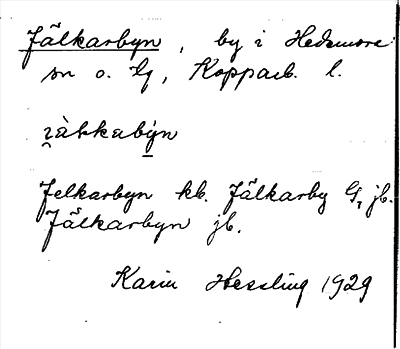 Jälkarbyn, by i Hedemora
sn o. tg, Kopparb. l.
Jelkarbyn kb. Jälkarby G, jb.
Jälkarbyn jb.
Karin Hessling 1929